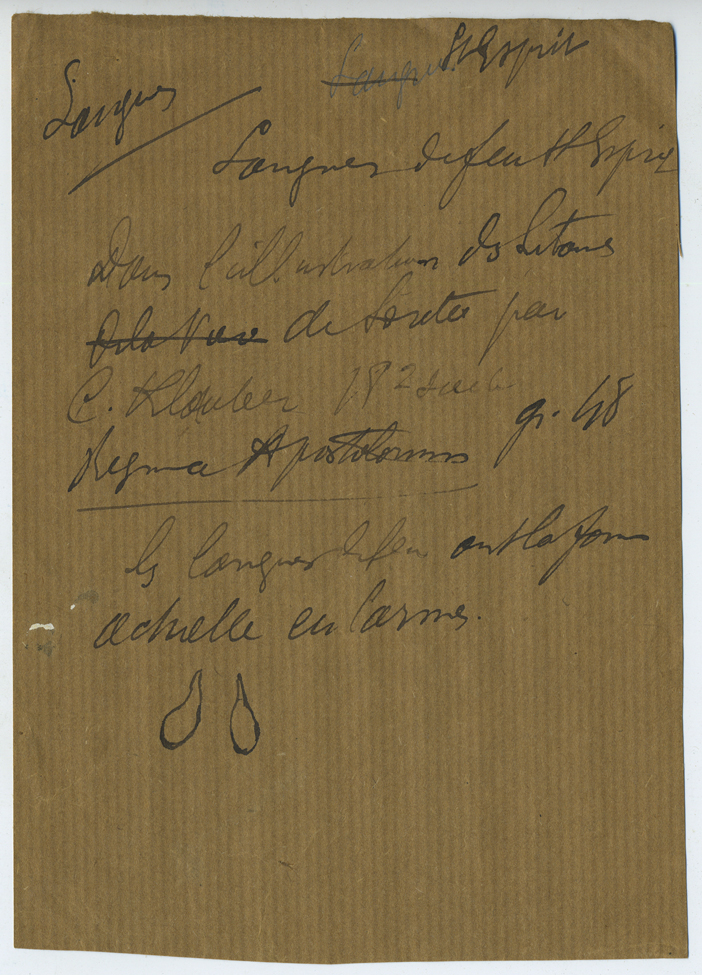 Langues
Langues St Esprit
Langues de feu St Esprit
Dans l'illustration des Litanies
de la Vier de Lorette par
C. Klauber 18e siècle
Regina Apostolorum gr. 48
les langues de feu ont la forme
actuelle en larmes.